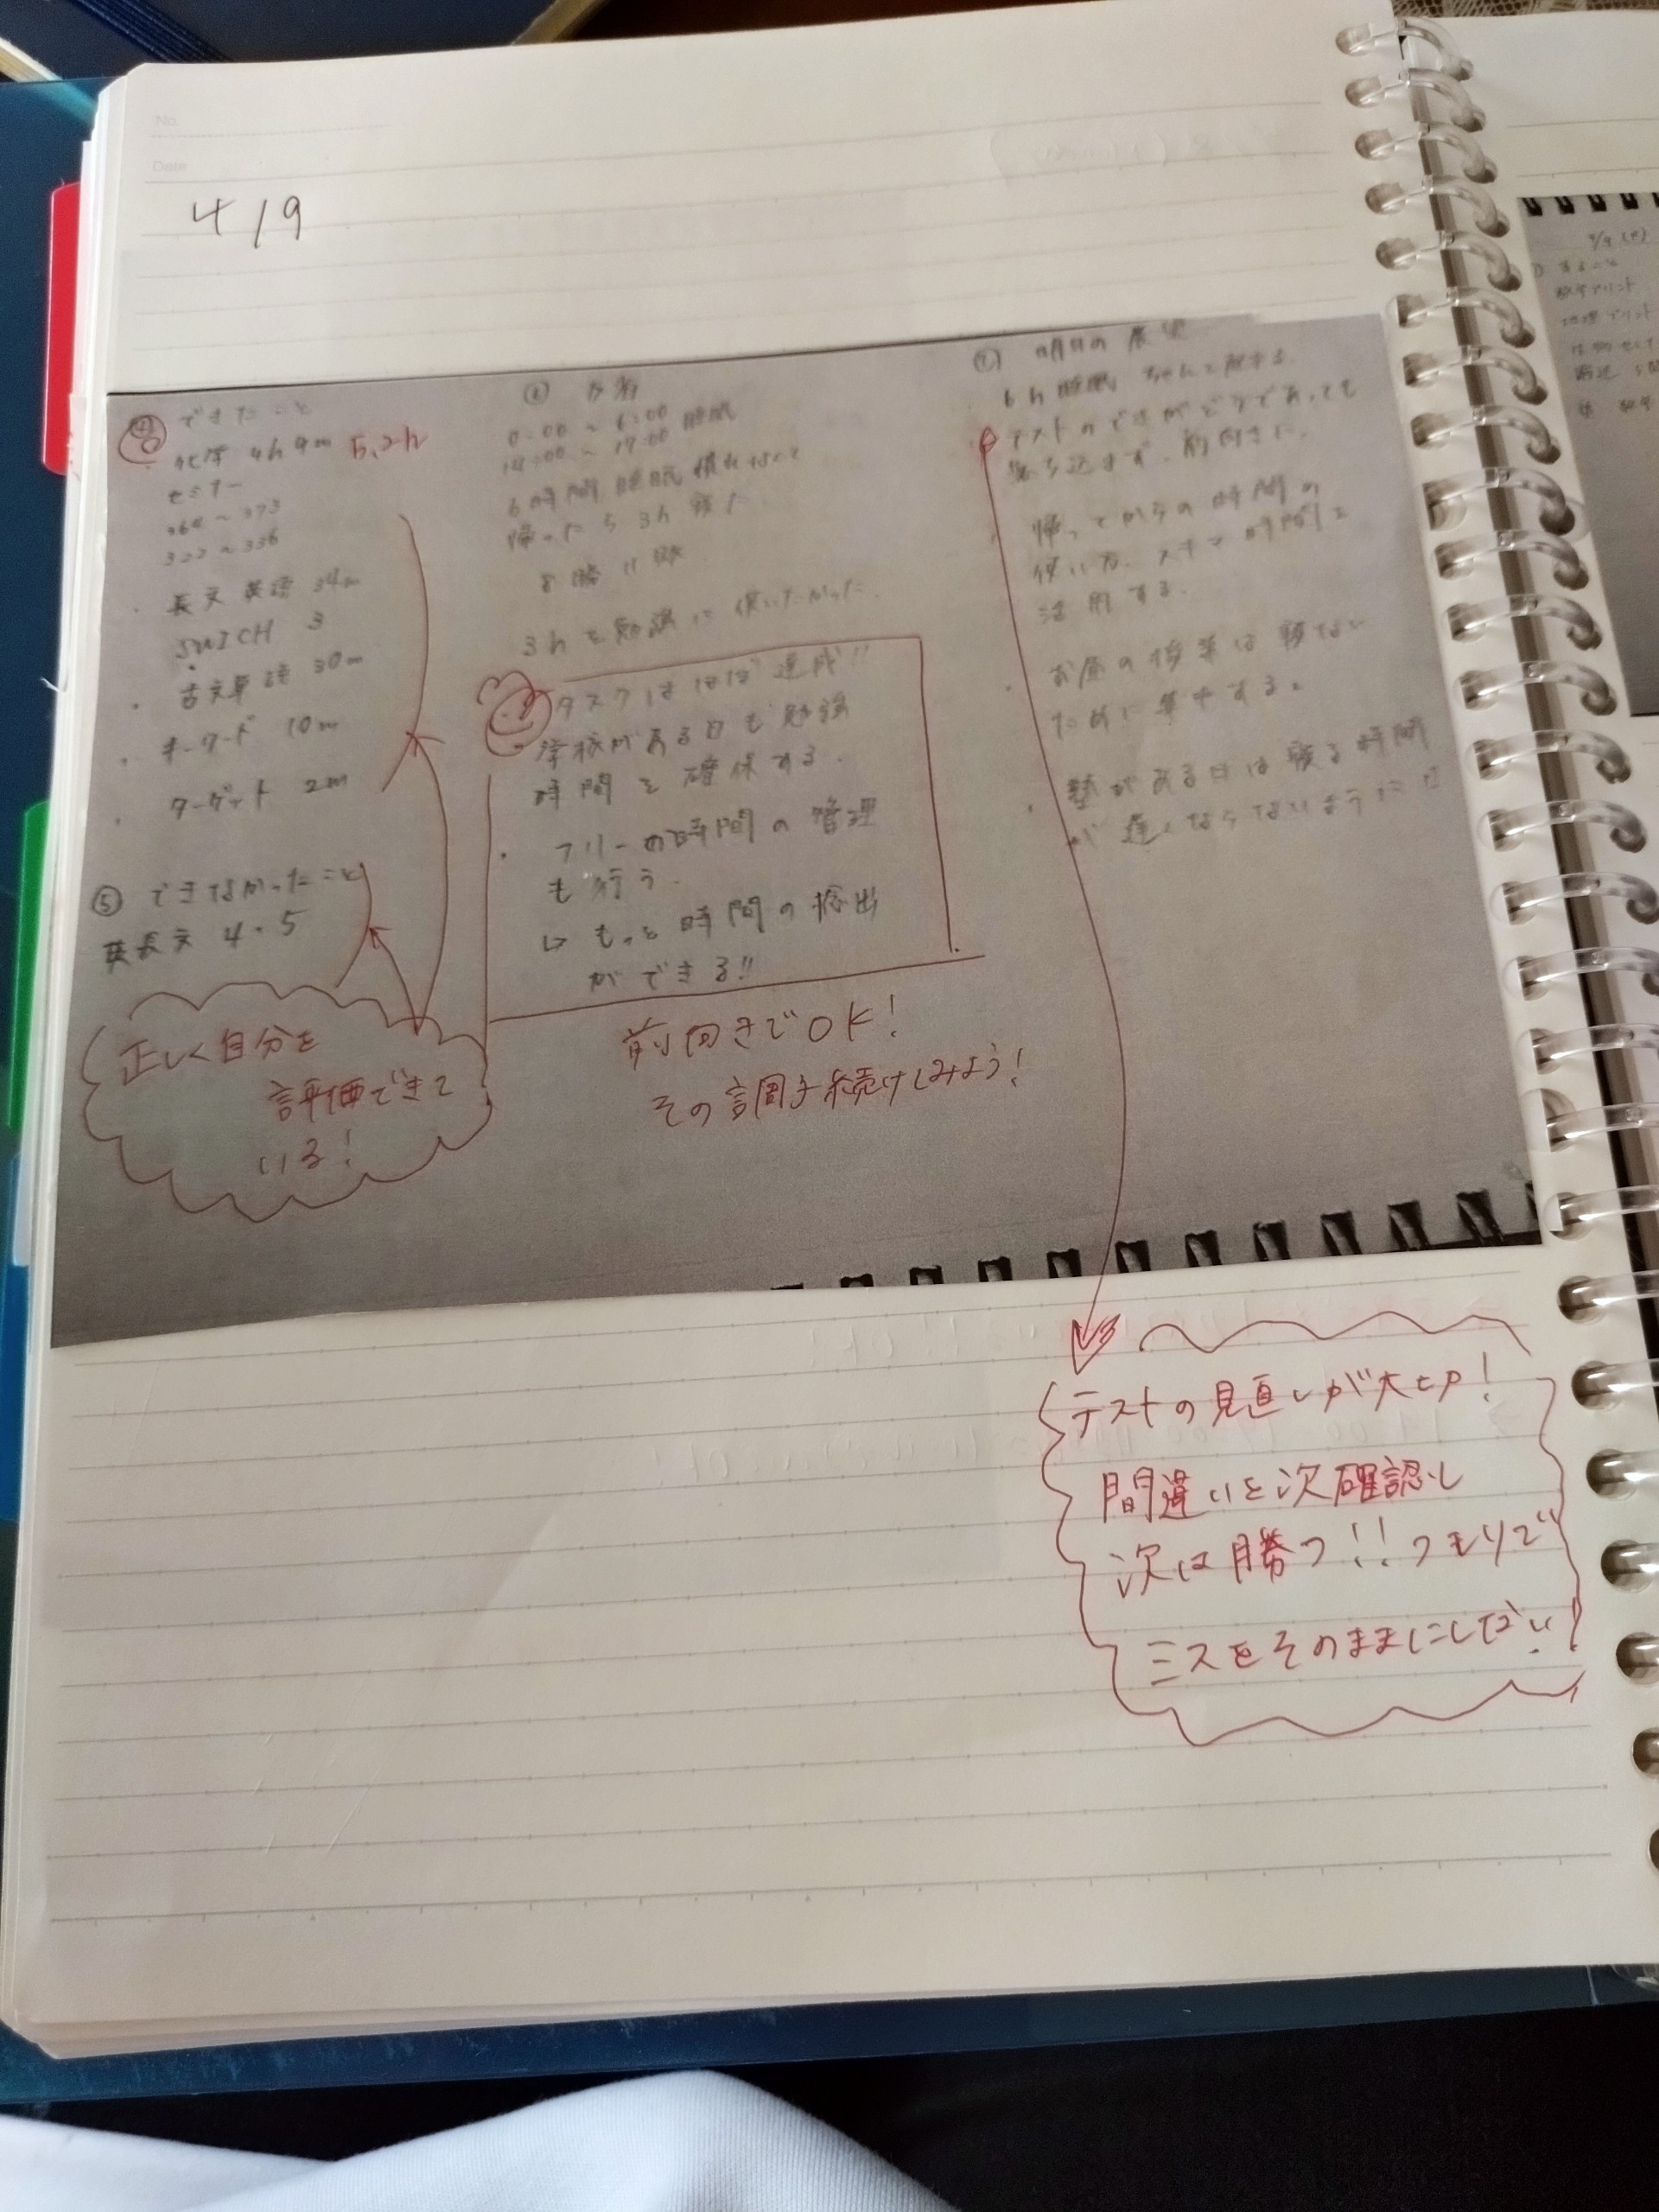 No.
Date
4/9
④ できたこと
化学 4h9m 5.2h
セミナー
364〜373
322〜336
・長文英語 34m
SWICH 3
・古文単語 30m
・キーワード 10m
・ターゲット 2m
⑤ できなかったこと
英長文 4・5
正しく自分を
評価できて
いる!
0:00〜6:00
14:00〜17:00 睡眠
6時間睡眠慣れなくて
帰ったら3h寝た
8勝11敗
3hを勉強に使いたかった
タスクはほぼ達成!!
学校がある日も勉強
時間を確保する.
・フリーの時間の管理
も行う.
↳もっと時間の捻出
ができる!!
前向きでOK!
その調子続けてみよう!
明日の展望
6h睡眠 ちゃんと起きる
テストのできがどうであっても
落ち込まず、前向きに.
帰ってからの時間の
使い方、スキマ時間を
活用する.
・お昼の授業は寝ない
ために集中する.
・塾がある日は寝る時間
が遅くならないように
テストの見直しが大切!
間違いを次確認し
次は勝つ!!つもりで
ミスをそのままにしない!
数学プリント
地理プリント